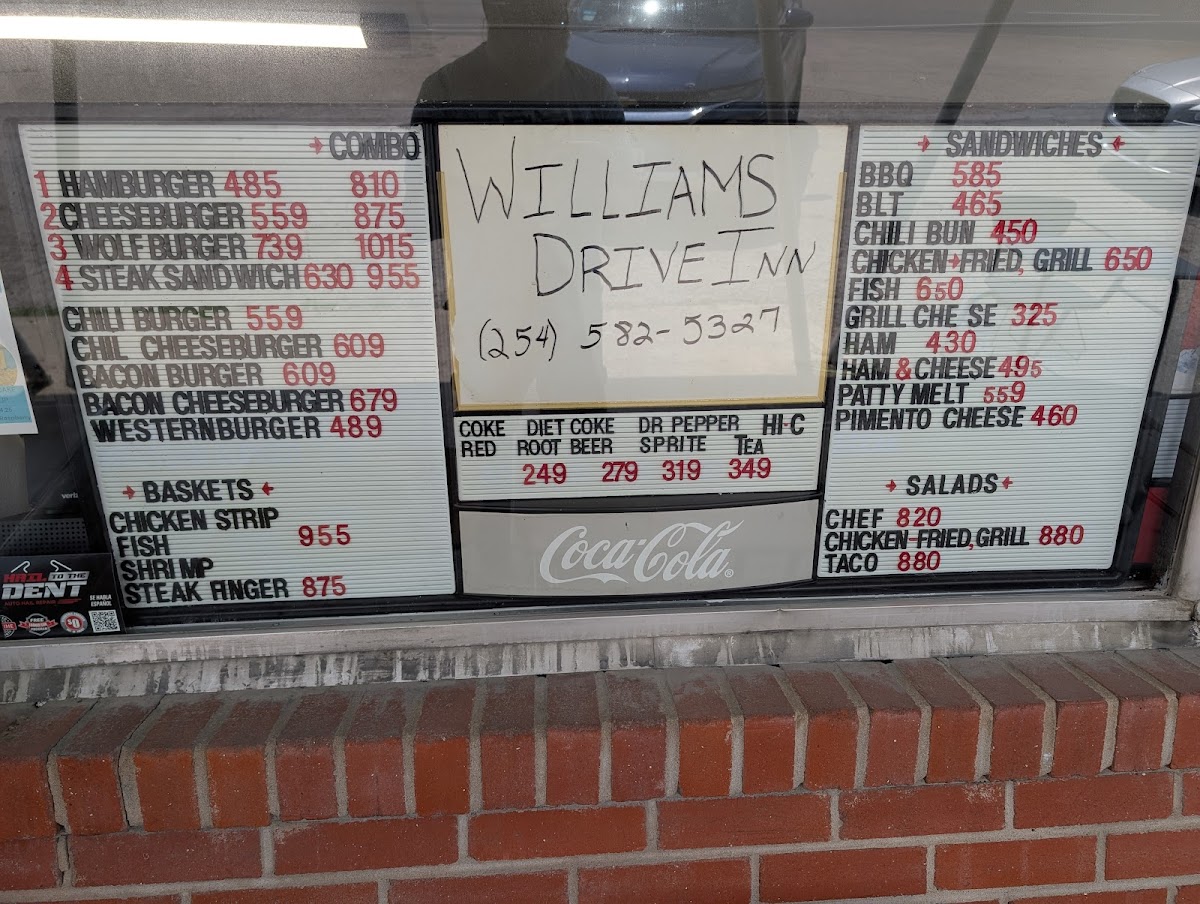 → COMBO
1 HAMBURGER 485 810
2 CHEESEBURGER 559 875
3 WOLF BURGER 739 1015
4 STEAK SANDWICH 630 955
CHILI BURGER 559
CHIL CHEESEBURGER 609
BACON BURGER 609
BACON CHEESEBURGER 679
WESTERNBURGER 489
→ BASKETS ←
CHICKEN STRIP
FISH 955
SHRIMP
STEAK FINGER 875
WILLIAMS
DRIVE INN
(254) 582-5327
COKE DIET COKE DR PEPPER HI-C
RED ROOT BEER SPRITE TEA
249 279 319 349
Coca-Cola®
→ SANDWICHES ←
BBQ 585
BLT 465
CHILI BUN 450
CHICKEN→FRIED, GRILL 650
FISH 650
GRILL CHE SE 325
HAM 430
HAM & CHEESE 495
PATTY MELT 559
PIMENTO CHEESE 460
→ SALADS ←
CHEF 820
CHICKEN-FRIED, GRILL 880
TACO 880
verizon
HAIL TO THE
DENT
AUTO HAIL REPAIR
SE HABLA
ESPAÑOL
FREE
$0